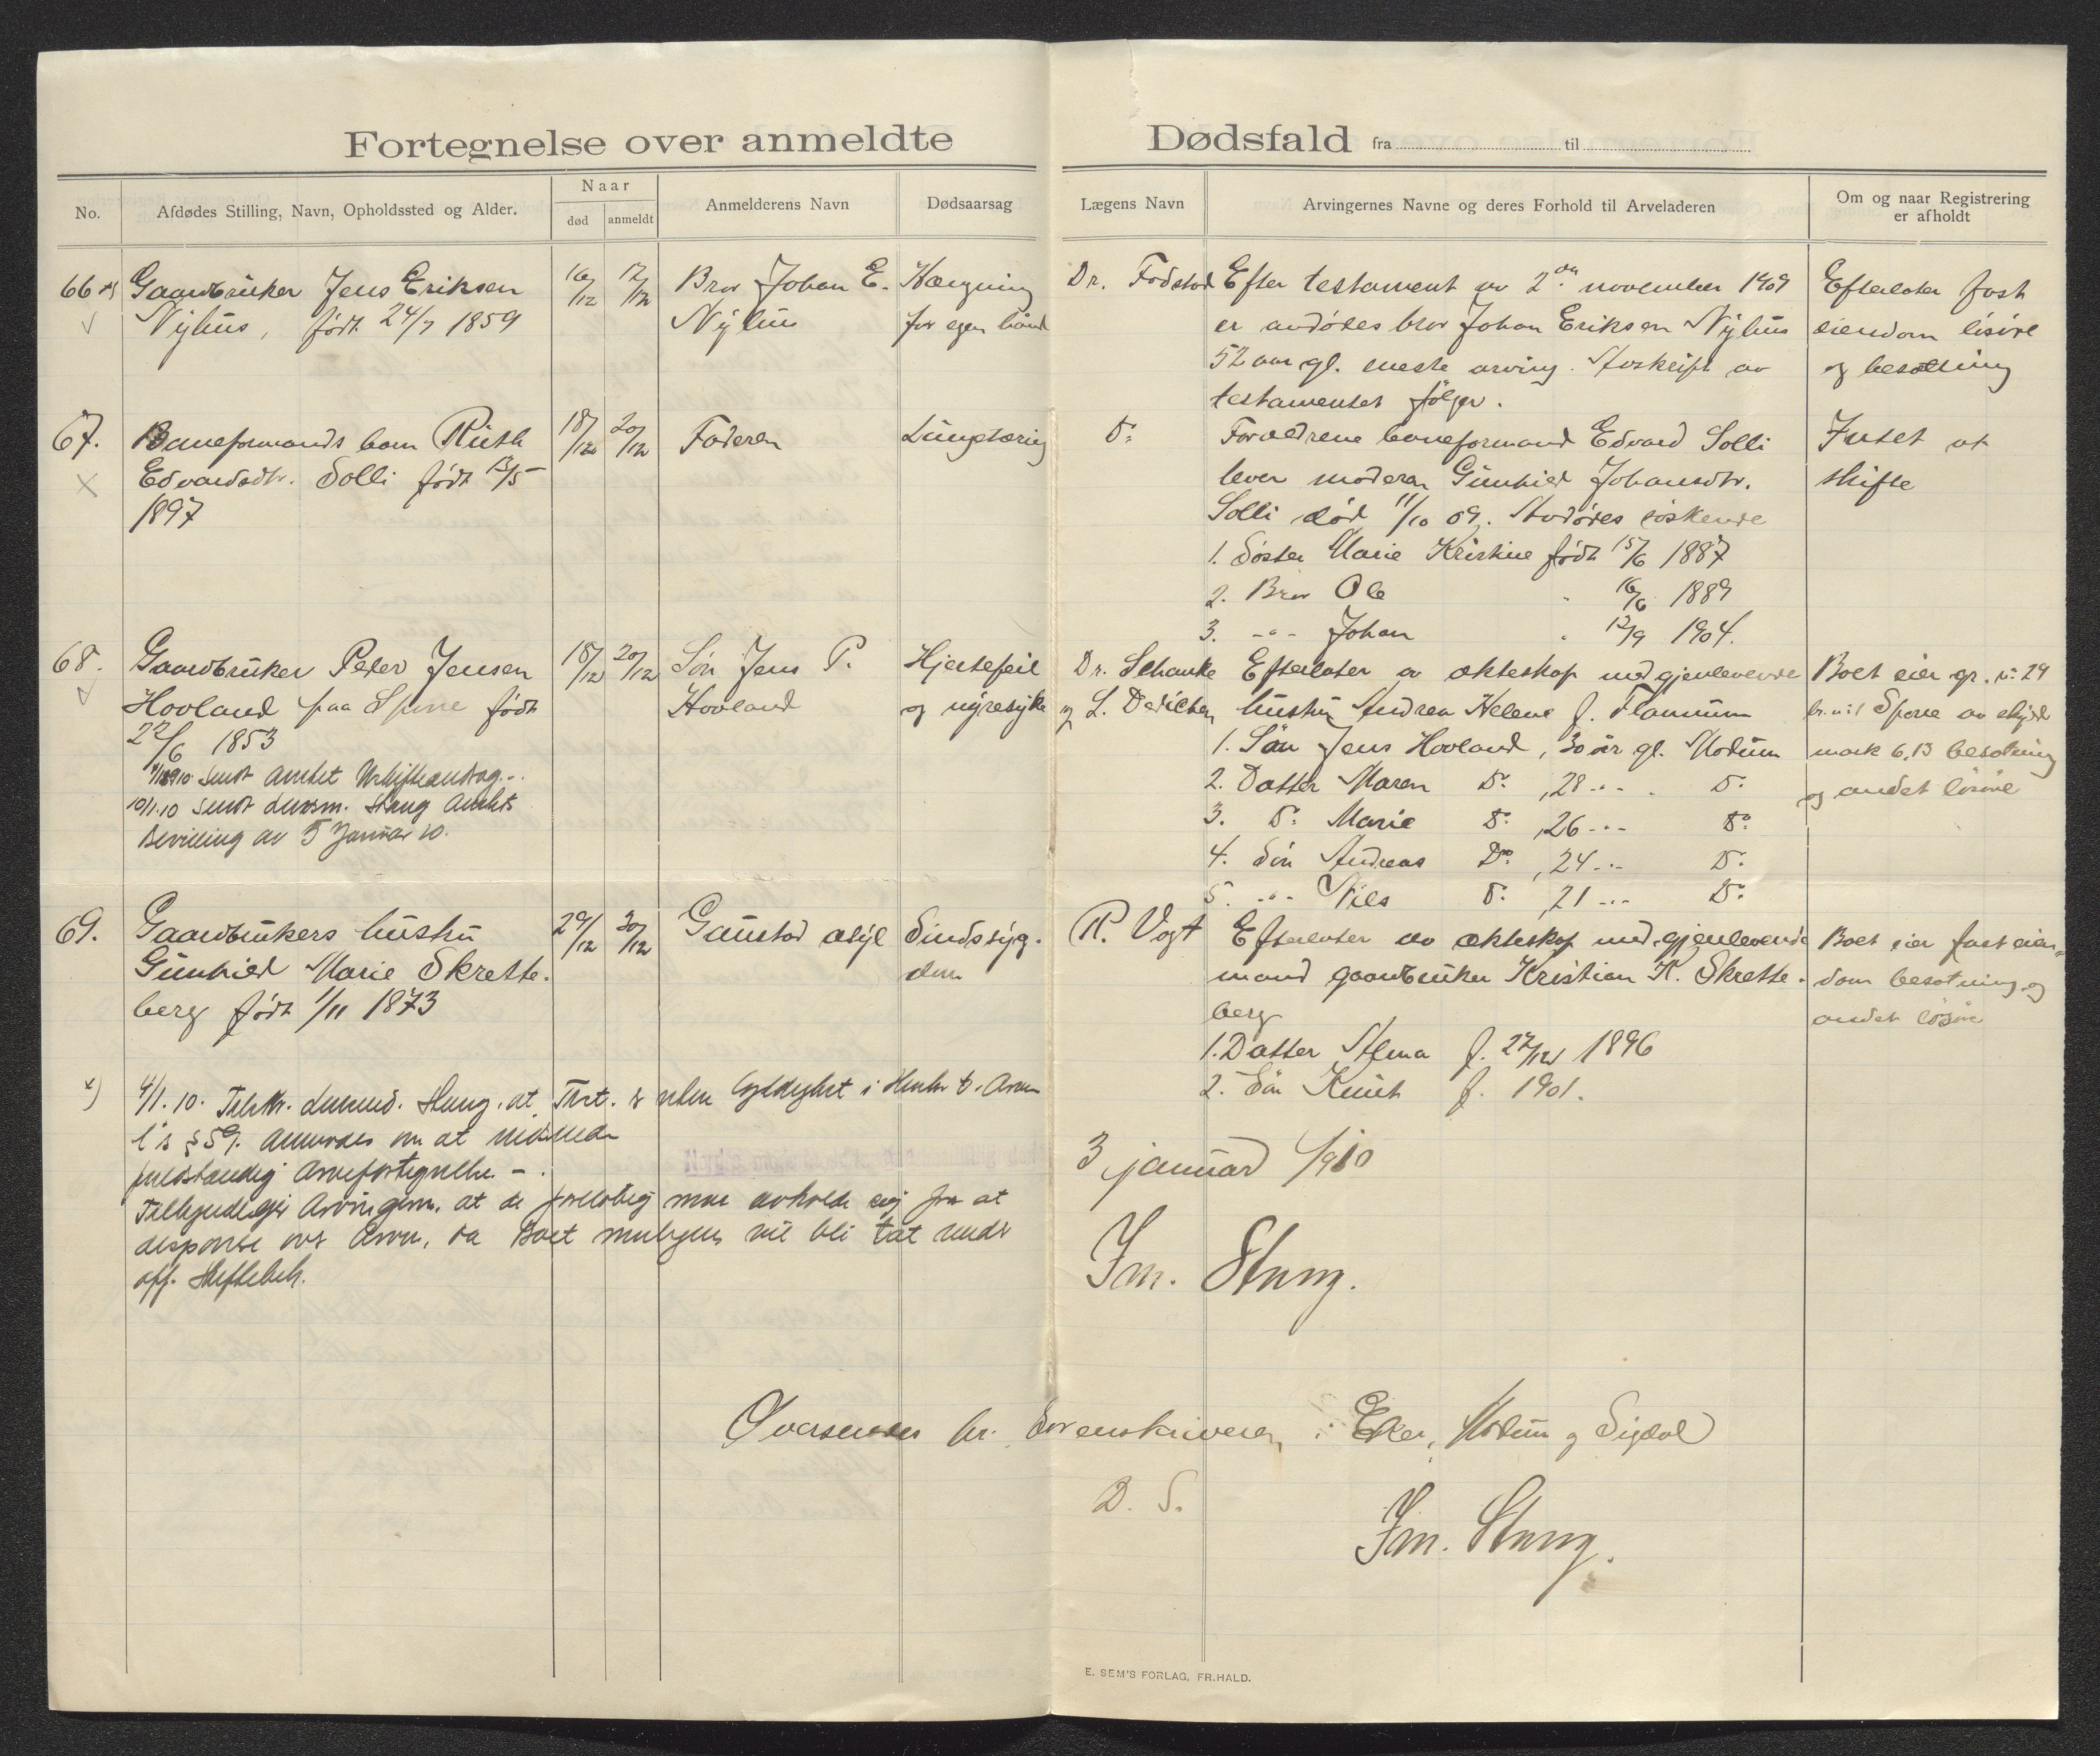 Fortegnelse over anmeldte Dødsfald fra til
No.
Afdødes Stilling, Navn, Opholdssted og Alder.
Naar
død
anmeldt
Anmelderens Navn
Dødsaarsag
Lægens Navn
Arvingernes Navne og deres Forhold til Arveladeren
Om og naar Registrering
er afholdt
66 x)
Gaardbruker Jens Eriksen
Nyhus, født 24/7 1859
16/12
17/12
Bror Johan E.
Nyhus
Hængning
for egen hånd
Dr. Fodstad
Efter testament av 2den november 1909
er avdødes bror Johan Eriksen Nyhus
52 aar gl. eneste arving. Avskrift av
testamentet følger.
Efterlater fast
eiendom løsøre
og besætning
67.
Baneformands barn Ruth
Edvardsdtr. Solli født 13/5
1897
18/12
20/12
Faderen
Lungetæring
Do
Forældrene baneformand Edvard Solli
lever moderen Gunhild Johansdtr.
Solli død 11/10 09. Avdødes søskende
1. Søster Marie Kristine født 15/6 1887
2. Bror Ole " 16/6 1889
3. -"- Johan " 12/9 1904.
Intet at
skifte
68.
Gaardbruker Peder Jensen
Hovland paa Spone født
22/6 1853
Sendt Amtet
10/1.10 Sendt Lensm. Stang Amtets
Bevilling av 5 Januar 10.
18/12
20/12
Søn Jens P.
Hovland
Hjertefeil
og nyresyke
Dr. Schanke
og L. Dedichen
Efterlater av ækteskap med gjenlevende
hustru Andrea Helene f. Flannum
1. Søn Jens Hovland, 30 år gl. Modum
2. Datter Maren Do, 28 -"- Do
3. Do Marie Do, 26 -"- Do
4. Søn Andreas Do, 24 -"- Do
5. -"- Nils Do, 21 -"- Do
Boet eier gr. no 29
br. no 1 Spone av skyld
mark 6,13 besætning
og andet løsøre
69.
Gaardbrukers hustru
Gunhild Marie Skrette-
berg født 1/11 1873
29/12
30/12
Gaustad asyl
Sindssyg-
dom
R. Vogt
Efterlater av ækteskap med gjenlevende
mand gaardbruker Kristian K. Skrette-
berg
1. Datter Alma f. 27/12 1896
2. Søn Knut f. 1901.
Boet eier fast eien-
dom besætning og
andet løsøre
x) 4/1.10. Tilskr. Lensmd. Stang, at Test. er uten Gyldighet i Henh. t. Arve
l's § 59. Anmodes om at indsende
fuldstændig Arvefortegnelse -.
Tilkjendegir Arvingerne, at de foreløbig maa avholde sig fra at
disponere over Arven, da Boet muligens vil bli tat under
off. Skiftebeh.
3 januar 1910
Im. Stang.
Oversendes hr. Sorenskriveren i Eker, Modum og Sigdal
D. S.
Im. Stang.
E. SEM'S FORLAG, FR.HALD.